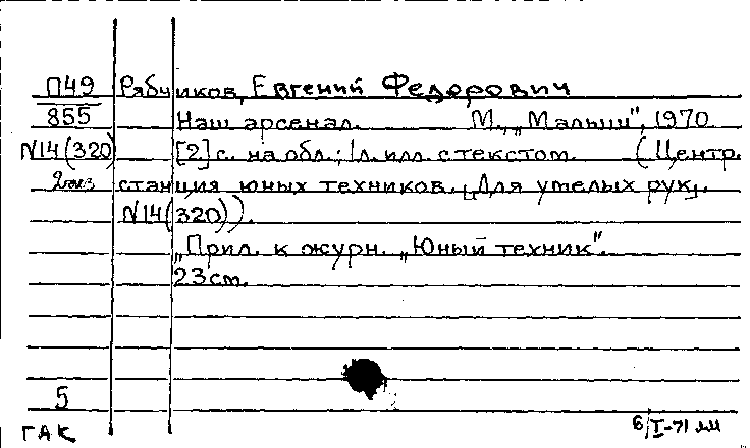 П49 Рябчиков, Евгений Федорович
855 Наш арсенал. М., „Малыш", 1970
N14(320) [2] с. на обл.; 1 л. илл. с текстом. (Центр.
2 экз станция юных техников. „Для умелых рук„.
N14(320)).
„Прил. к журн. „Юный техник".
23 см.
5
ГАК 6/I-71